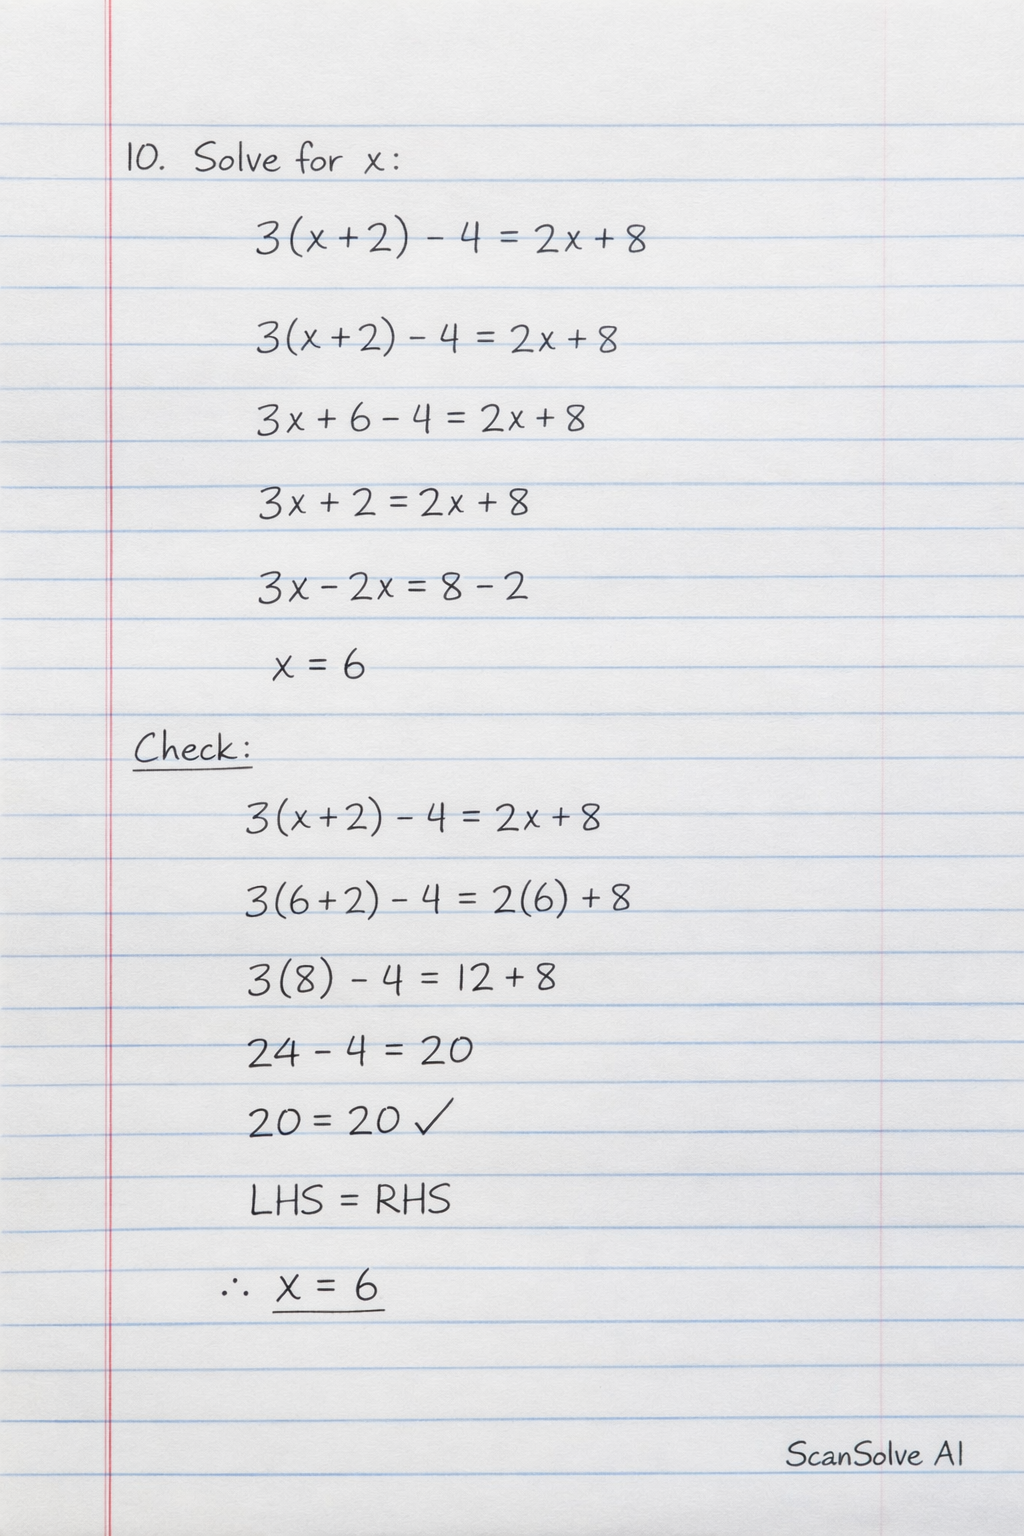 10. Solve for x:
3(x+2) - 4 = 2x + 8
3(x+2) - 4 = 2x + 8
3x + 6 - 4 = 2x + 8
3x + 2 = 2x + 8
3x - 2x = 8 - 2
x = 6
Check:
3(x+2) - 4 = 2x + 8
3(6+2) - 4 = 2(6) + 8
3(8) - 4 = 12 + 8
24 - 4 = 20
20 = 20 ✓
LHS = RHS
∴ x = 6
ScanSolve AI